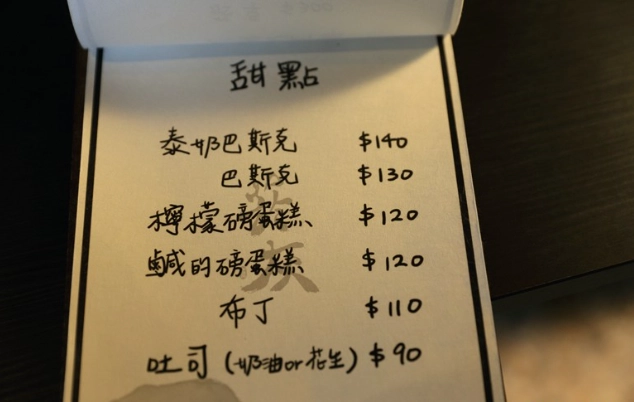 甜點
泰奶巴斯克 $140
巴斯克 $130
檸檬磅蛋糕 $120
鹹的磅蛋糕 $120
布丁 $110
吐司(奶油or花生) $90